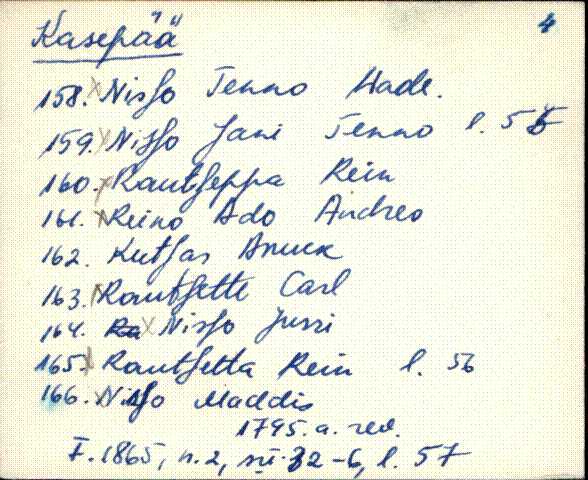 Kasepää 4
158. Nisso Tenno Made.
159. Nisso Jani Tenno l. 56
160. Rautseppa Rein
161. Reino Ado Andreo
162. Kutsar Annuck
163. Rautsette Carl
164. Ra Nisso Jurri
165. Rautsetta Rein l. 56
166. Nisso Maddis
1795. a. rev.
F. 1865, n. 2, 32-6, l. 57